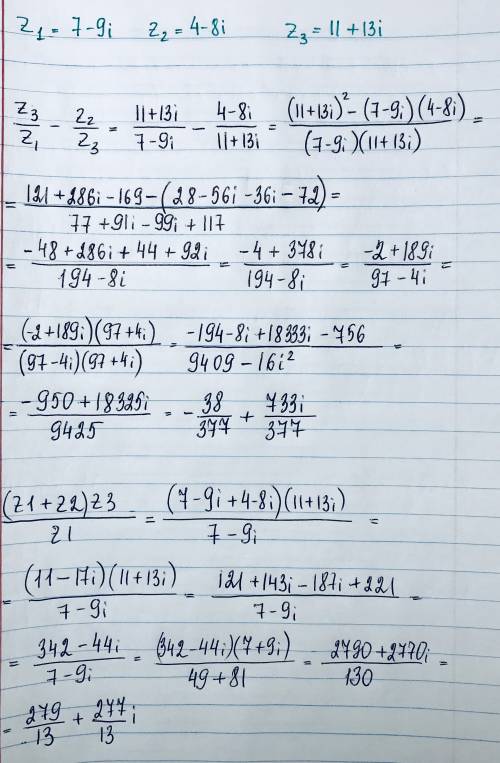 z₁ = 7-9i   z₂ = 4-8i   z₃ = 11+13i
z₃/z₁ - z₂/z₃ = (11+13i)/(7-9i) - (4-8i)/(11+13i) = ((11+13i)² - (7-9i)(4-8i))/((7-9i)(11+13i)) =
= (121+286i-169-(28-56i-36i-72))/(77+91i-99i+117) =
= (-48+286i+44+92i)/(194-8i) = (-4+378i)/(194-8i) = (-2+189i)/(97-4i) =
= ((-2+189i)(97+4i))/((97-4i)(97+4i)) = (-194-8i+18333i-756)/(9409-16i²) =
= (-950+18325i)/9425 = -38/377 + 733i/377
((z1+z2)z3)/z1 = ((7-9i+4-8i)(11+13i))/(7-9i) =
= ((11-17i)(11+13i))/(7-9i) = (121+143i-187i+221)/(7-9i) =
= (342-44i)/(7-9i) = ((342-44i)(7+9i))/(49+81) = (2790+2770i)/130 =
= 279/13 + 277/13 i